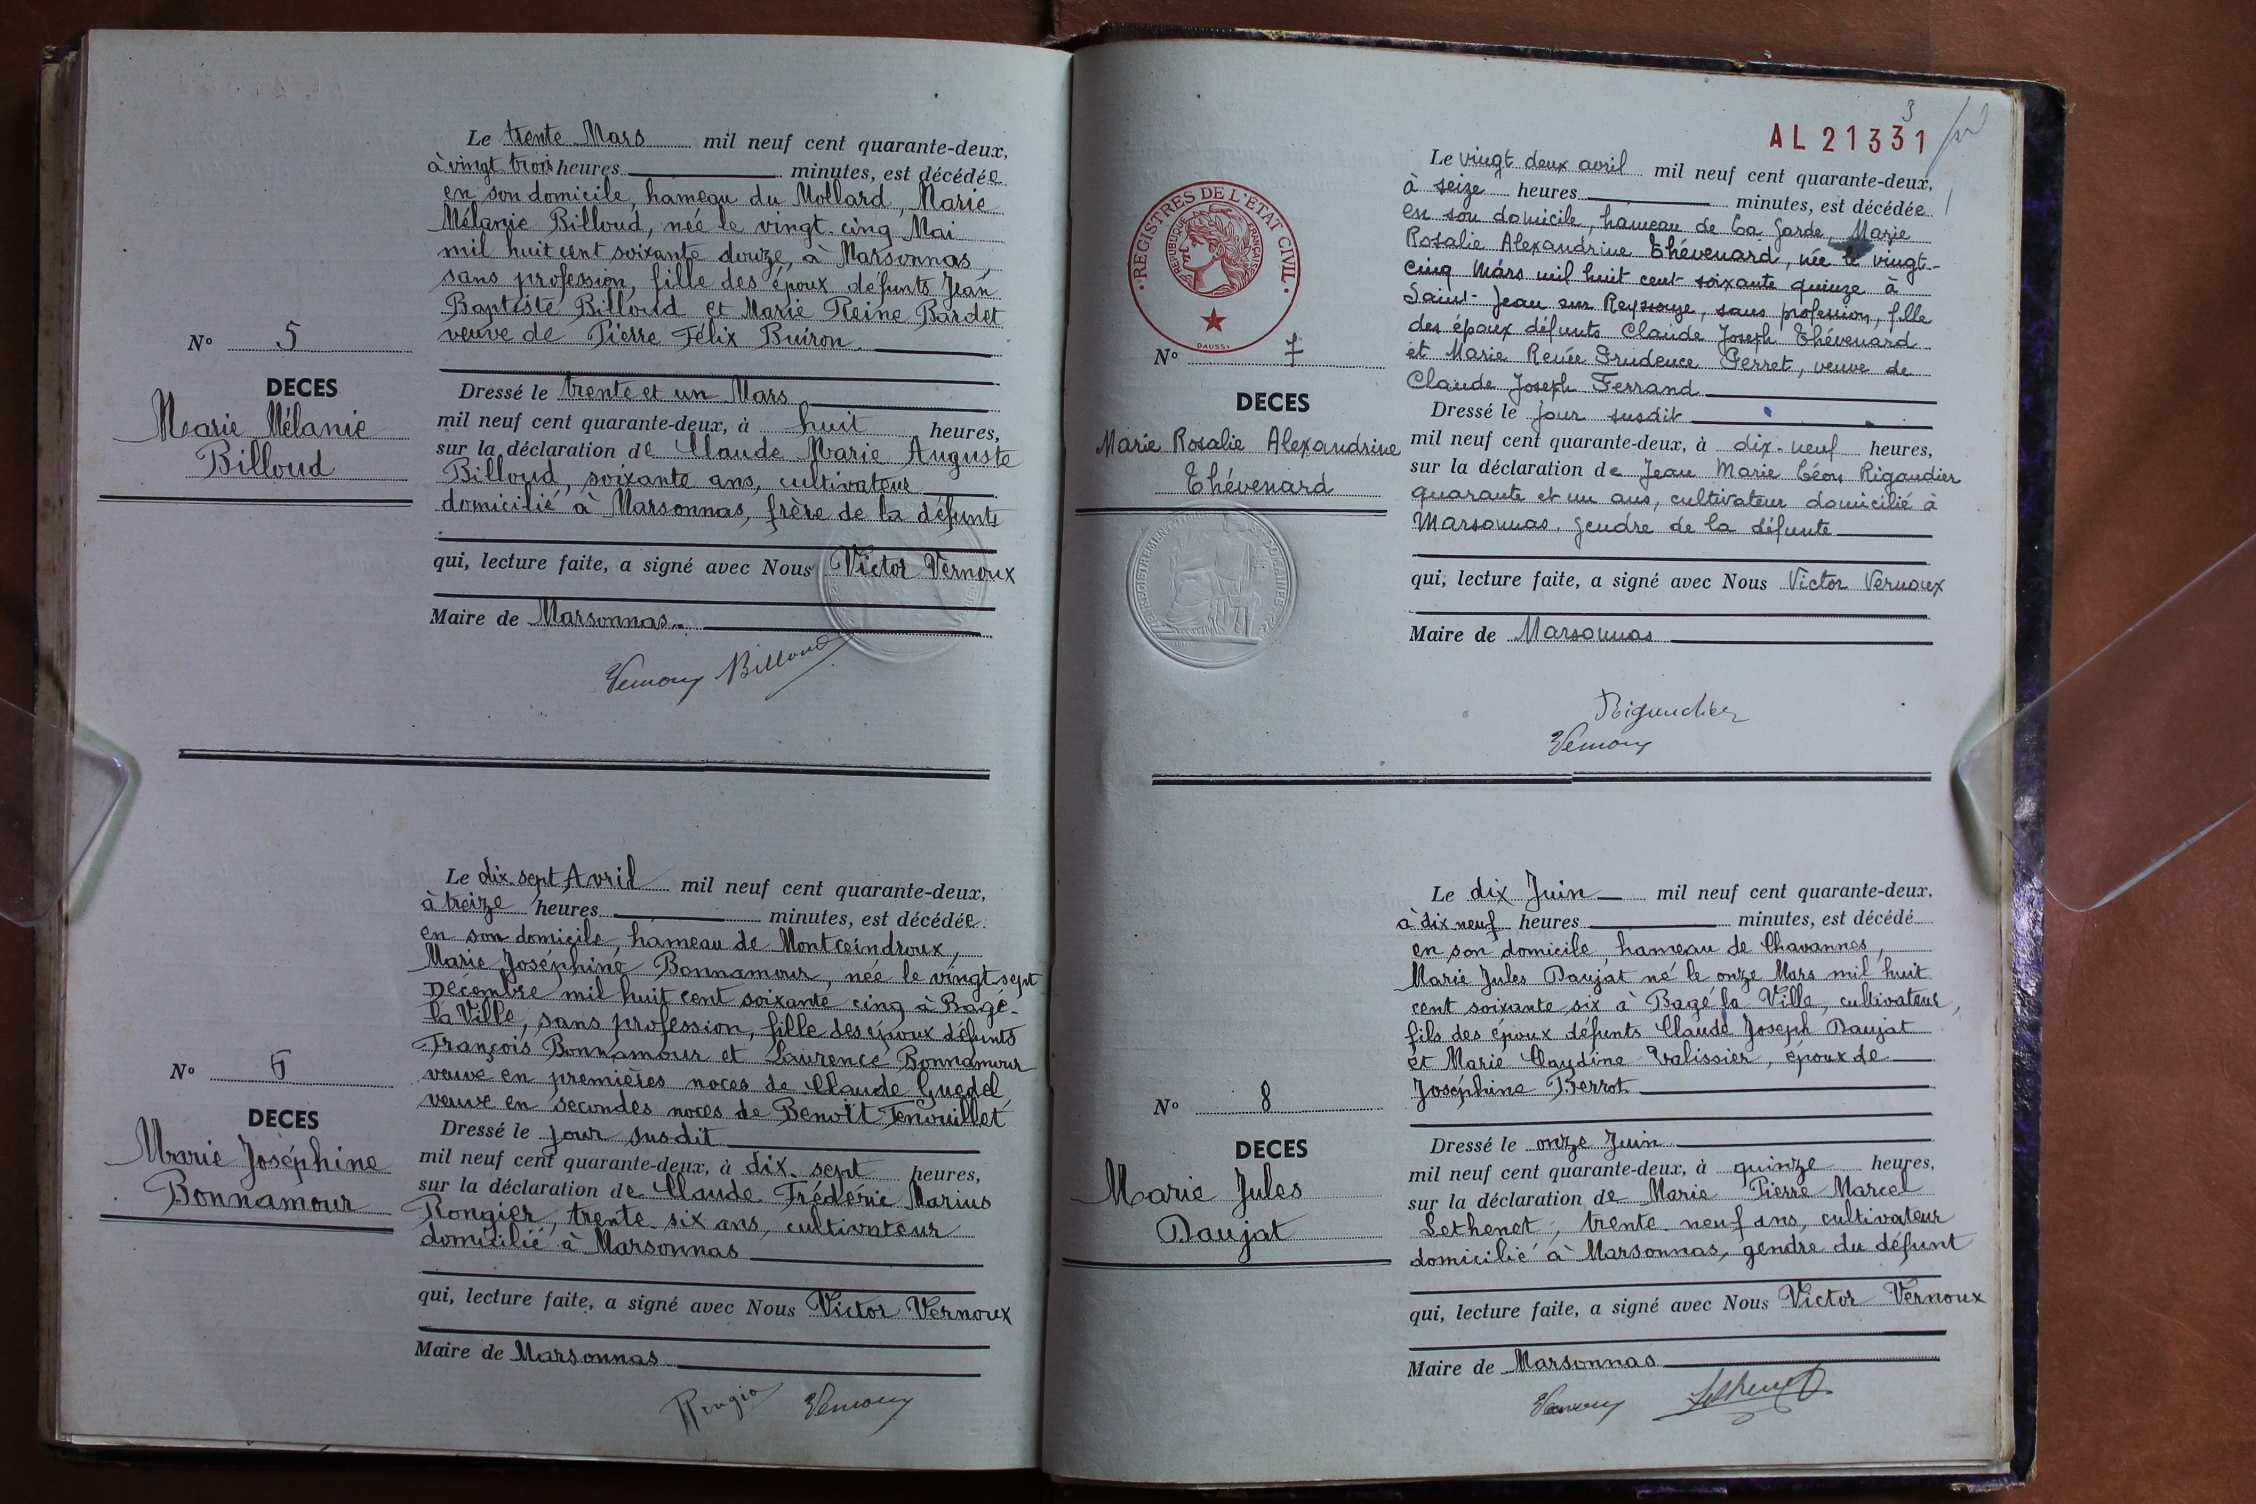 Le trente Mars mil neuf cent quarante-deux,
à vingt trois heures minutes, est décédée
en son domicile, hameau du Mollard, Marie
Mélanie Billoud, née le vingt-cinq Mai
mil huit cent soixante douze, à Marsonnas,
sans profession, fille des époux défunts Jean
Baptiste Billoud et Marie Reine Bardet
veuve de Pierre Félix Buiron.
N° 5
DECES
Marie Mélanie
Billoud
Dressé le trente et un Mars
mil neuf cent quarante-deux, à huit heures,
sur la déclaration de Claude Marie Auguste
Billoud, soixante ans, cultivateur
domicilié à Marsonnas, frère de la défunte
qui, lecture faite, a signé avec Nous Victor Vernoux
Maire de Marsonnas.
Vernoux Billoud
Le dix-sept Avril mil neuf cent quarante-deux,
à treize heures minutes, est décédée
en son domicile, hameau de Montceindroux,
Marie Joséphine Bonnamour, née le vingt sept
Décembre mil huit cent soixante cinq à Bagé-
la Ville, sans profession, fille des époux défunts
François Bonnamour et Laurence Bonnamour
veuve en premières noces de Claude Guedel,
veuve en secondes noces de Benoît Fenouillet
N° 6
DECES
Marie Joséphine
Bonnamour
Dressé le jour susdit
mil neuf cent quarante-deux, à dix-sept heures,
sur la déclaration de Claude Frédéric Marius
Rongier, trente-six ans, cultivateur
domicilié à Marsonnas
qui, lecture faite, a signé avec Nous Victor Vernoux
Maire de Marsonnas
Rongier Vernoux
3
AL 21331
REGISTRES DE L'ÉTAT CIVIL
RÉPUBLIQUE FRANÇAISE
Le vingt deux avril mil neuf cent quarante-deux,
à seize heures minutes, est décédée
en son domicile, hameau de La Garde, Marie
Rosalie Alexandrine Thévenard, née le vingt-
cinq Mars mil huit cent soixante quinze à
Saint-Jean sur Reyssouze, sans profession, fille
des époux défunts Claude Joseph Thévenard
et Marie Renée Prudence Perret, veuve de
Claude Joseph Ferrand
N° 7
DECES
Marie Rosalie Alexandrine
Thévenard
Dressé le jour susdit
mil neuf cent quarante-deux, à dix-neuf heures,
sur la déclaration de Jean Marie Léon Rigaudier
quarante et un ans, cultivateur domicilié à
Marsonnas, gendre de la défunte
qui, lecture faite, a signé avec Nous Victor Vernoux
Maire de Marsonnas
Rigaudier
Vernoux
Le dix Juin mil neuf cent quarante-deux,
à dix neuf heures minutes, est décédé
en son domicile, hameau de Chavannes,
Marie Jules Daujat né le onze Mars mil huit
cent soixante six à Bagé la Ville, cultivateur,
fils des époux défunts Claude Joseph Daujat
et Marie Claudine Valissier, époux de
Joséphine Berrot
N° 8
DECES
Marie Jules
Daujat
Dressé le onze Juin
mil neuf cent quarante-deux, à quinze heures,
sur la déclaration de Marie Pierre Marcel
Lethenet, trente-neuf ans, cultivateur
domicilié à Marsonnas, gendre du défunt
qui, lecture faite, a signé avec Nous Victor Vernoux
Maire de Marsonnas
Vernoux Lethenet